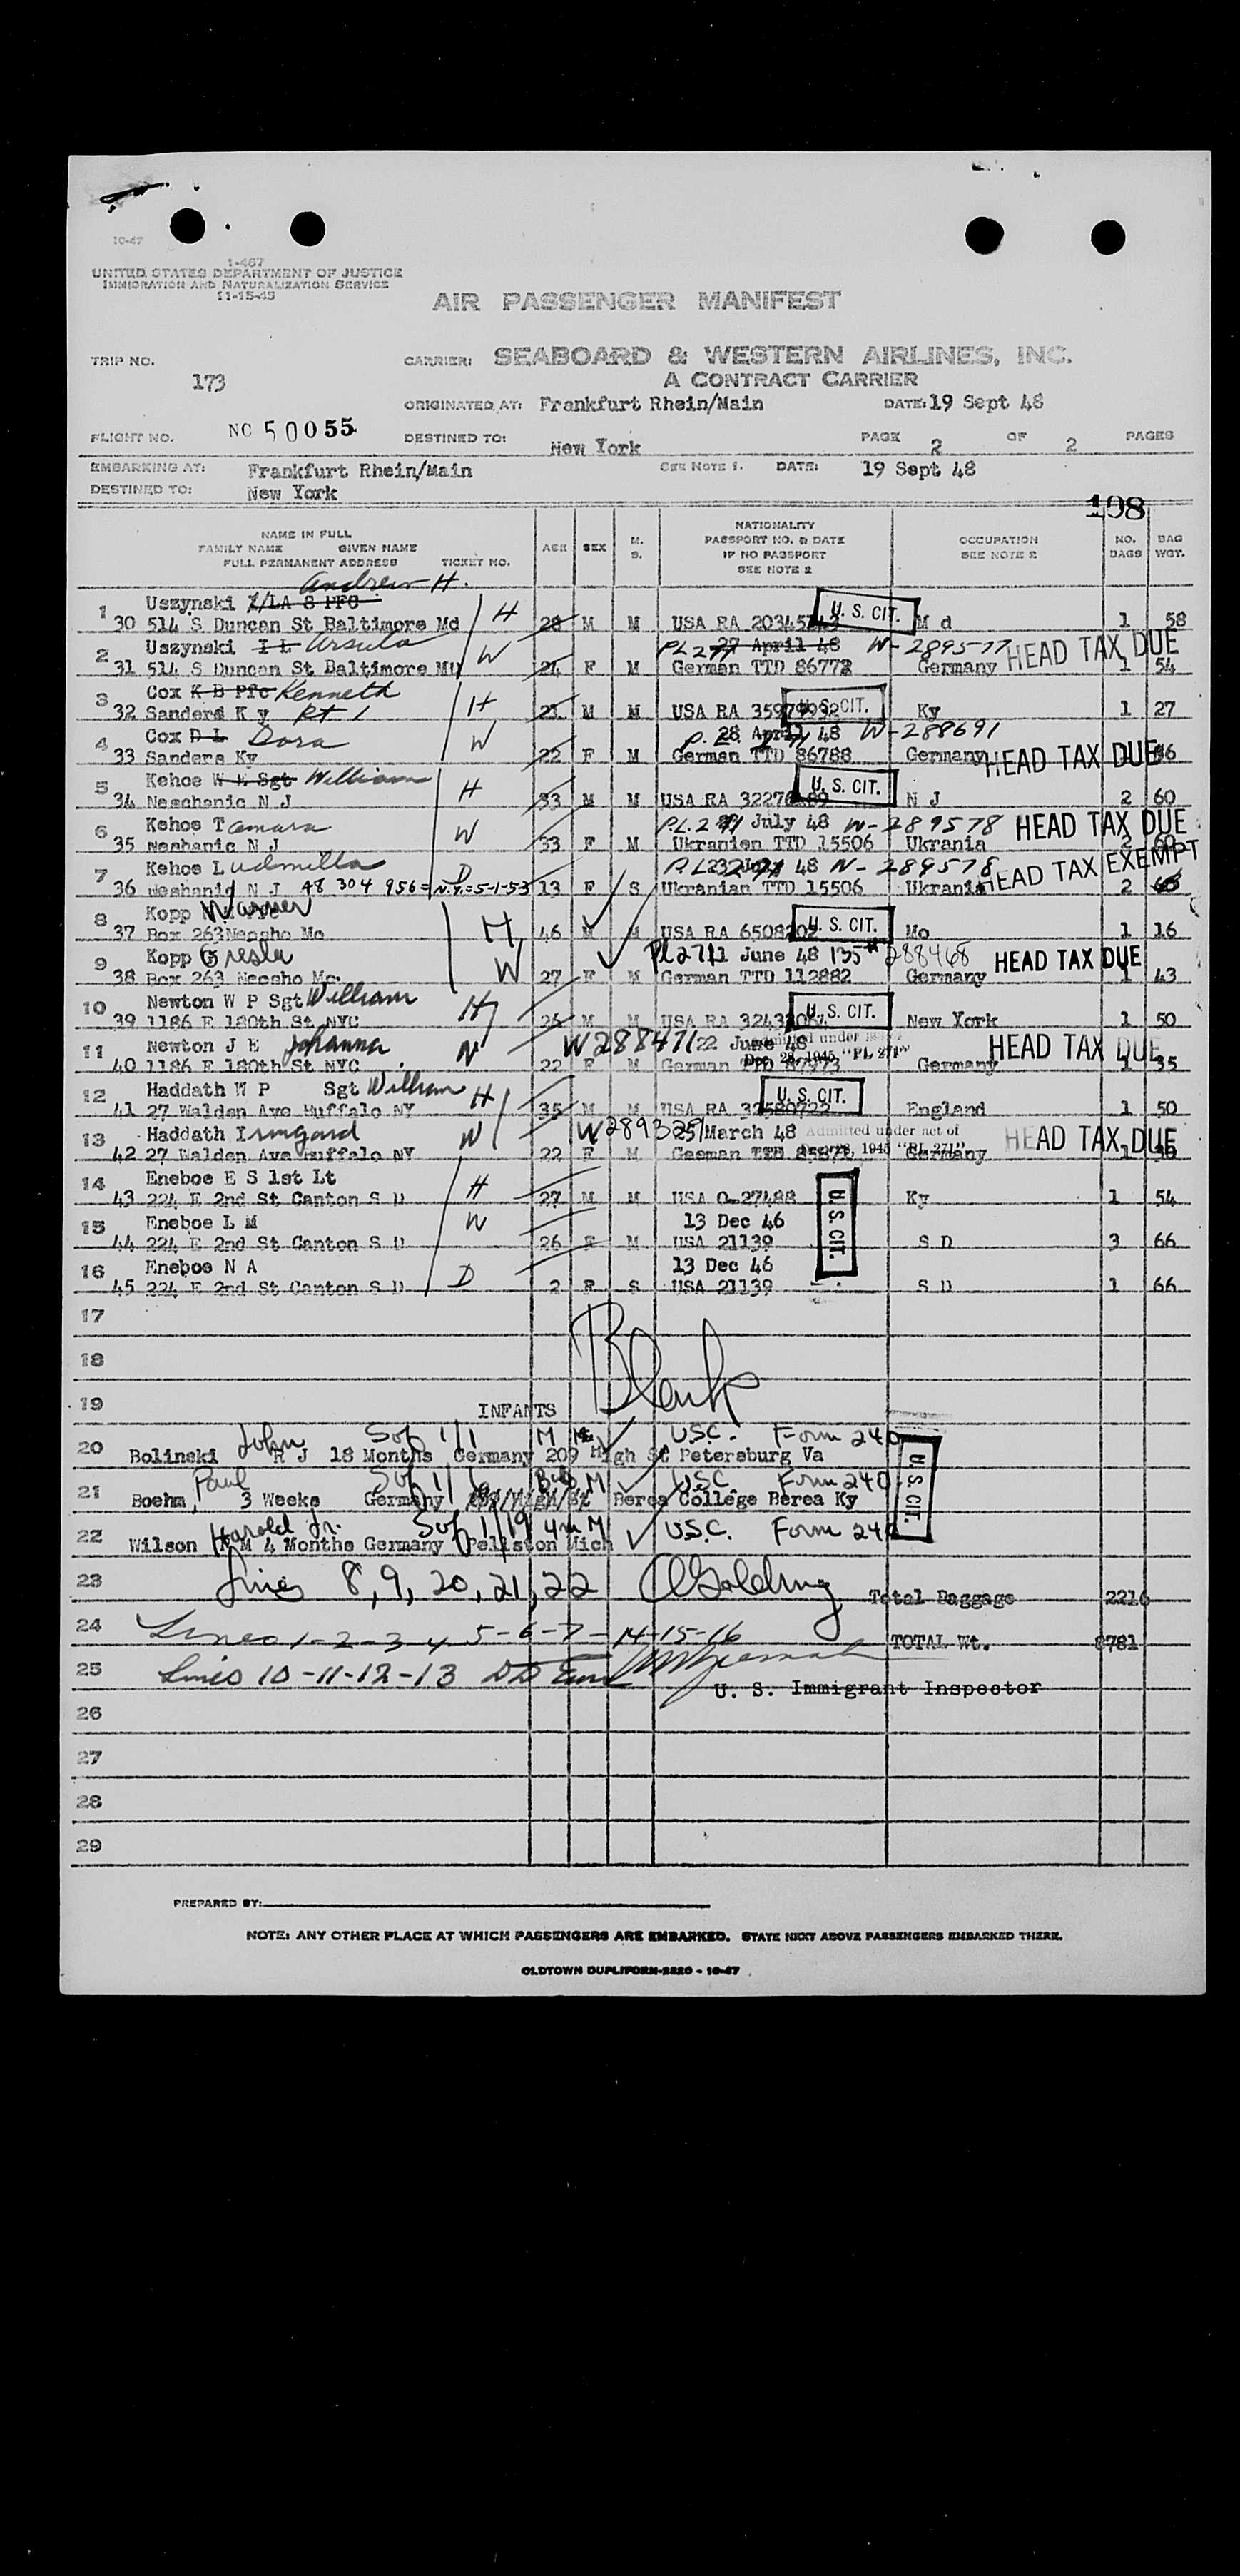 10-47
1-467
UNITED STATES DEPARTMENT OF JUSTICE
IMMIGRATION AND NATURALIZATION SERVICE
11-15-45
AIR PASSENGER MANIFEST
TRIP NO. 173
CARRIER: SEABOARD & WESTERN AIRLINES, INC.
A CONTRACT CARRIER
ORIGINATED AT: Frankfurt Rhein/Main DATE: 19 Sept 48
FLIGHT NO. NC 50055 DESTINED TO: New York PAGE 2 OF 2 PAGES
EMBARKING AT: Frankfurt Rhein/Main SEE NOTE 1. DATE: 19 Sept 48
DESTINED TO: New York
198
NAME IN FULL
FAMILY NAME GIVEN NAME
FULL PERMANENT ADDRESS TICKET NO.
AGE SEX M. S.
NATIONALITY
PASSPORT NO. & DATE
IF NO PASSPORT
SEE NOTE 2
OCCUPATION
SEE NOTE 2
NO. BAGS
BAG WGT.
Andrew H.
1 Uszynski
30 514 S Duncan St Baltimore Md H 28 M M USA RA U. S. CIT. M d 1 58
2 Uszynski I L Ursula W PL 271 27 April 48 W-289577 HEAD TAX DUE
31 514 S Duncan St Baltimore Md 24 F M German TTD 86778 Germany 1 54
3 Cox K B Pfc Kenneth
32 Sanders K y Rt 1 H 23 M M USA RA U. S. CIT. Ky 1 27
4 Cox D L Dora W 28 April 48 W-288691
33 Sanders Ky 22 F M German TTD 86788 Germany HEAD TAX DUE
5 Kehoe W E Sgt William
34 Neschanic N J H 33 M M USA RA U. S. CIT. N J 2 60
6 Kehoe Tamara W PL 271 July 48 W-289578 HEAD TAX DUE
35 Neshanic N J 33 F M Ukranien TTD 15506 Ukrania 2 60
7 Kehoe Ludmilla D July 48 N-289578 HEAD TAX EXEMPT
36 Neshanic N J 48 304 956 = N.Y. = 5-1-53 13 F S Ukranian TTD 15506 Ukrania 2
8 Kopp Warner
37 Box 263 Neosho Mo H 46 M M USA RA U. S. CIT. Mo 1 16
9 Kopp Gresla W PL 271 June 48 135# 288468 HEAD TAX DUE
38 Box 263 Neosho Mo. 27 F M German TTD 112882 Germany 1 43
10 Newton W P Sgt William
39 1186 E 180th St NYC H 26 M M USA RA U. S. CIT. New York 1 50
11 Newton J E Johanna W W288471 22 June 48 Dec. 28, 1945 "PL 271" HEAD TAX DUE
40 1186 E 180th St NYC 22 F M German TTD Germany 1 35
12 Haddath W P Sgt William
41 27 Walden Ave Buffalo NY H 35 M M USA RA U. S. CIT. England 1 50
13 Haddath Irmgard W W289329 March 48 Admitted under act of HEAD TAX DUE
42 27 Walden Ave Buffalo NY 22 F M German TTD Dec. 28, 1945 "PL 271" Germany 1
14 Eneboe E S 1st Lt
43 224 E 2nd St Canton S D H 27 M M USA O-27488 Ky 1 54
15 Eneboe L M W 13 Dec 46 U. S. CIT.
44 224 E 2nd St Canton S D 26 F M USA 21139 S D 3 66
16 Eneboe N A D 13 Dec 46
45 224 E 2nd St Canton S D 2 F S USA 21139 S D 1 66
17
18 Blank
19 INFANTS
20 John M U.S.C. Form 240
Bolinski R J 18 Months Germany 209 High St Petersburg Va
21 Paul M U.S.C. Form 240 U. S. CIT.
Boehm, 3 Weeks Germany Berea College Berea Ky
22 Harold Jr. M U.S.C. Form 240
Wilson H M 4 Months Germany Pellston Mich
23 Lines 8, 9, 20, 21, 22 Golding Total Baggage 2216
24 Lines 1-2-3-4 5-6-7-14-15-16 TOTAL Wt. 8781
25 Lines 10-11-12-13
U. S. Immigrant Inspector
26
27
28
29
PREPARED BY:
NOTE: ANY OTHER PLACE AT WHICH PASSENGERS ARE EMBARKED. STATE NEXT ABOVE PASSENGERS EMBARKED THERE.
OLDTOWN DUPLIFORM-2220 - 10-47